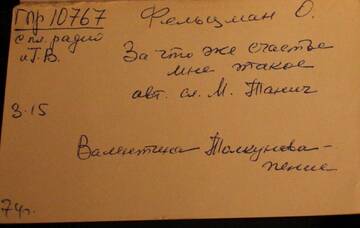 Гпр 10767
Фельцман О.
с пл. радио
и Т.В.
За что же счастье
мне такое
авт. сл. М. Танич
3.15
Валентина Толкунова -
пение
74г.